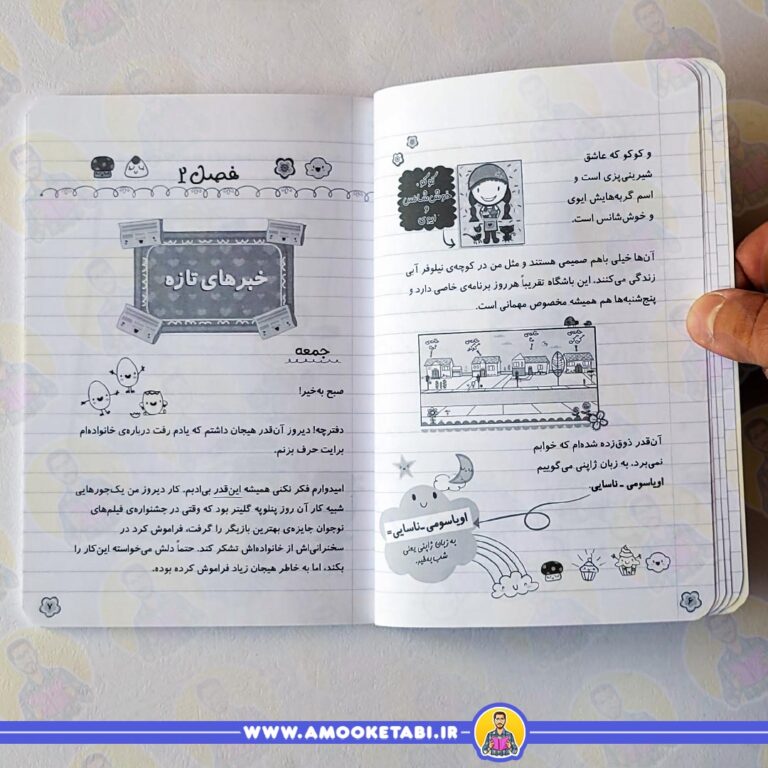 و کوکو که عاشق
شیرینی‌پزی است و
اسم گربه‌هایش ایوی
و خوش‌شانس است.
کوکو،
خوش‌شانس
و
ایوی
آن‌ها خیلی باهم صمیمی هستند و مثل من در کوچه‌ی نیلوفر آبی
زندگی می‌کنند. این باشگاه تقریباً هرروز برنامه‌ی خاصی دارد و
پنج‌شنبه‌ها هم همیشه مخصوص مهمانی است.
آن‌قدر ذوق‌زده شده‌ام که خوابم
نمی‌برد. به زبان ژاپنی می‌گوییم
اویاسومی ـ ناسایی.
اویاسومی ـ ناسایی=
به زبان ژاپنی یعنی
شب به‌خیر.
۶
فصل ۲
خبرهای تازه
جمعه
صبح به‌خیر!
دفترچه! دیروز آن‌قدر هیجان داشتم که یادم رفت درباره‌ی خانواده‌ام
برایت حرف بزنم.
امیدوارم فکر نکنی همیشه این‌قدر بی‌ادبم. کار دیروز من یک‌جورهایی
شبیه کار آن روز پنلوپه گلیتر بود که وقتی در جشنواره‌ی فیلم‌های
نوجوان جایزه‌ی بهترین بازیگر را گرفت، فراموش کرد در
سخنرانی‌اش از خانواده‌اش تشکر کند. حتماً دلش می‌خواسته این‌کار را
بکند، اما به خاطر هیجان زیاد فراموش کرده بوده.
۷
WWW.AMOOKETABI.IR